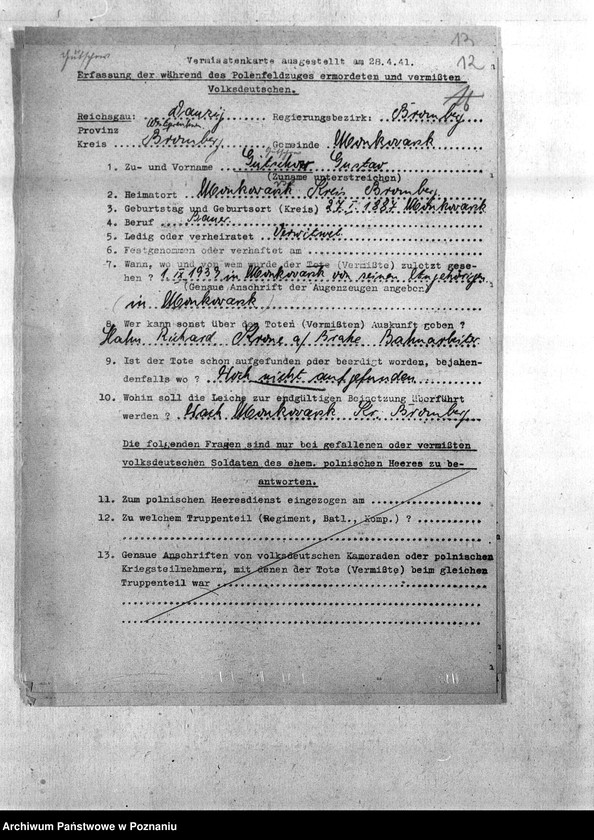 Gütschow
13
12
Vermisstenkarte ausgestellt am 28.4.41.
Erfassung der während des Polenfeldzuges ermordeten und vermißten
Volksdeutschen.
Reichsgau: Danzig Regierungsbezirk: Bromberg
Provinz Westpreußen
Kreis Bromberg Gemeinde Monkowarsk
1. Zu- und Vorname Gustav
(Zuname unterstreichen)
2. Heimatort Monkowarsk Kreis Bromberg
3. Geburtstag und Geburtsort (Kreis) 27.I.1887 Monkowarsk
4. Beruf Bauer
5. Ledig oder verheiratet Verwitwet
6. Festgenommen oder verhaftet am
7. Wann, wo und von wem wurde der Tote (Vermißte) zuletzt gese-
hen ? 1.IX 1939 in Monkowarsk von seinen Angehörigen
(Genaue Anschrift der Augenzeugen angeben)
(in Monkowarsk)
8. Wer kann sonst über den Toten (Vermißten) Auskunft geben ?
Hahn Richard Krone a/ Brahe Bahnarbeiter
9. Ist der Tote schon aufgefunden oder beerdigt worden, bejahen-
denfalls wo ? Noch nicht aufgefunden
10. Wohin soll die Leiche zur endgültigen Beisetzung überführt
werden ? Nach Monkowarsk Kr. Bromberg
Die folgenden Fragen sind nur bei gefallenen oder vermißten
volksdeutschen Soldaten des ehem. polnischen Heeres zu be-
antworten.
11. Zum polnischen Heeresdienst eingezogen am
12. Zu welchem Truppenteil (Regiment, Batl., Komp.) ?
13. Genaue Anschriften von volksdeutschen Kameraden oder polnischen
Kriegsteilnehmern, mit denen der Tote (Vermißte) beim gleichen
Truppenteil war
Archiwum Państwowe w Poznaniu